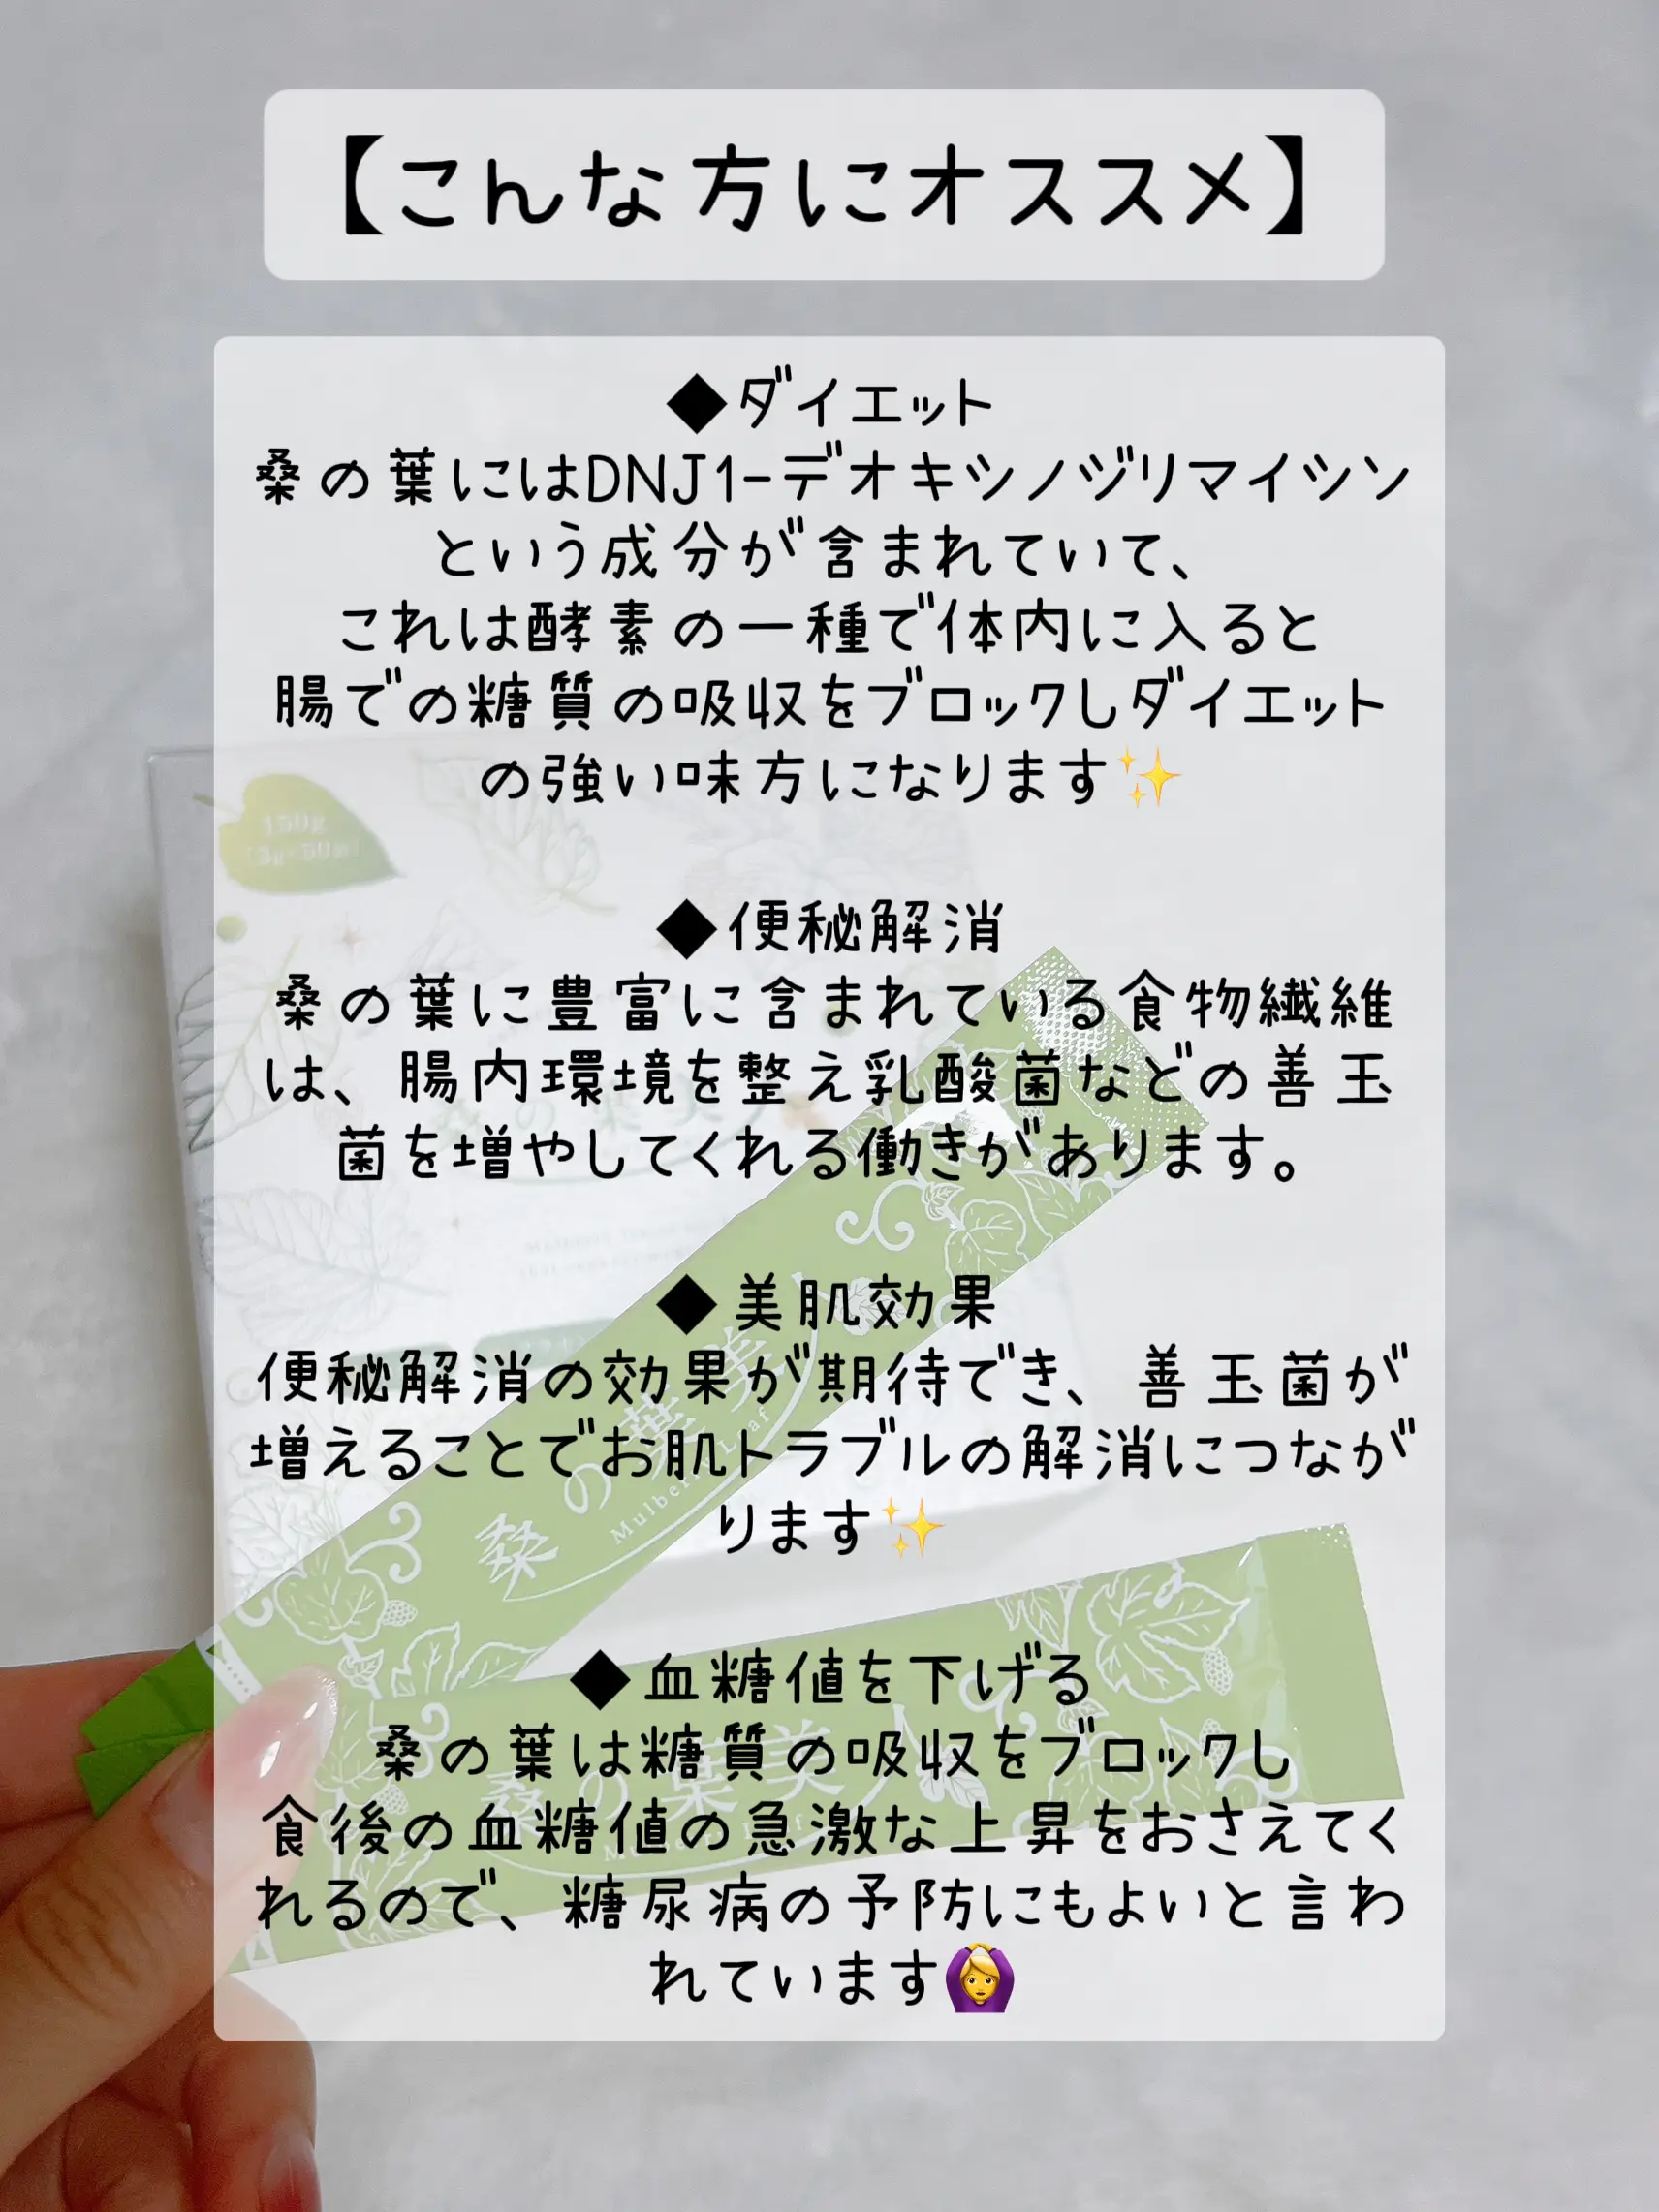 【こんな方にオススメ】
◆ダイエット
桑の葉にはDNJ1-デオキシノジリマイシン
という成分が含まれていて、
これは酵素の一種で体内に入ると
腸での糖質の吸収をブロックしダイエット
の強い味方になります✨
◆便秘解消
桑の葉に豊富に含まれている食物繊維
は、腸内環境を整え乳酸菌などの善玉
菌を増やしてくれる働きがあります。
◆美肌効果
便秘解消の効果が期待でき、善玉菌が
増えることでお肌トラブルの解消につなが
ります✨
◆血糖値を下げる
桑の葉は糖質の吸収をブロックし
食後の血糖値の急激な上昇をおさえてく
れるので、糖尿病の予防にもよいと言わ
れています🙆‍♀️
150g
桑の葉美
Mulberry Leaf
桑の葉美人